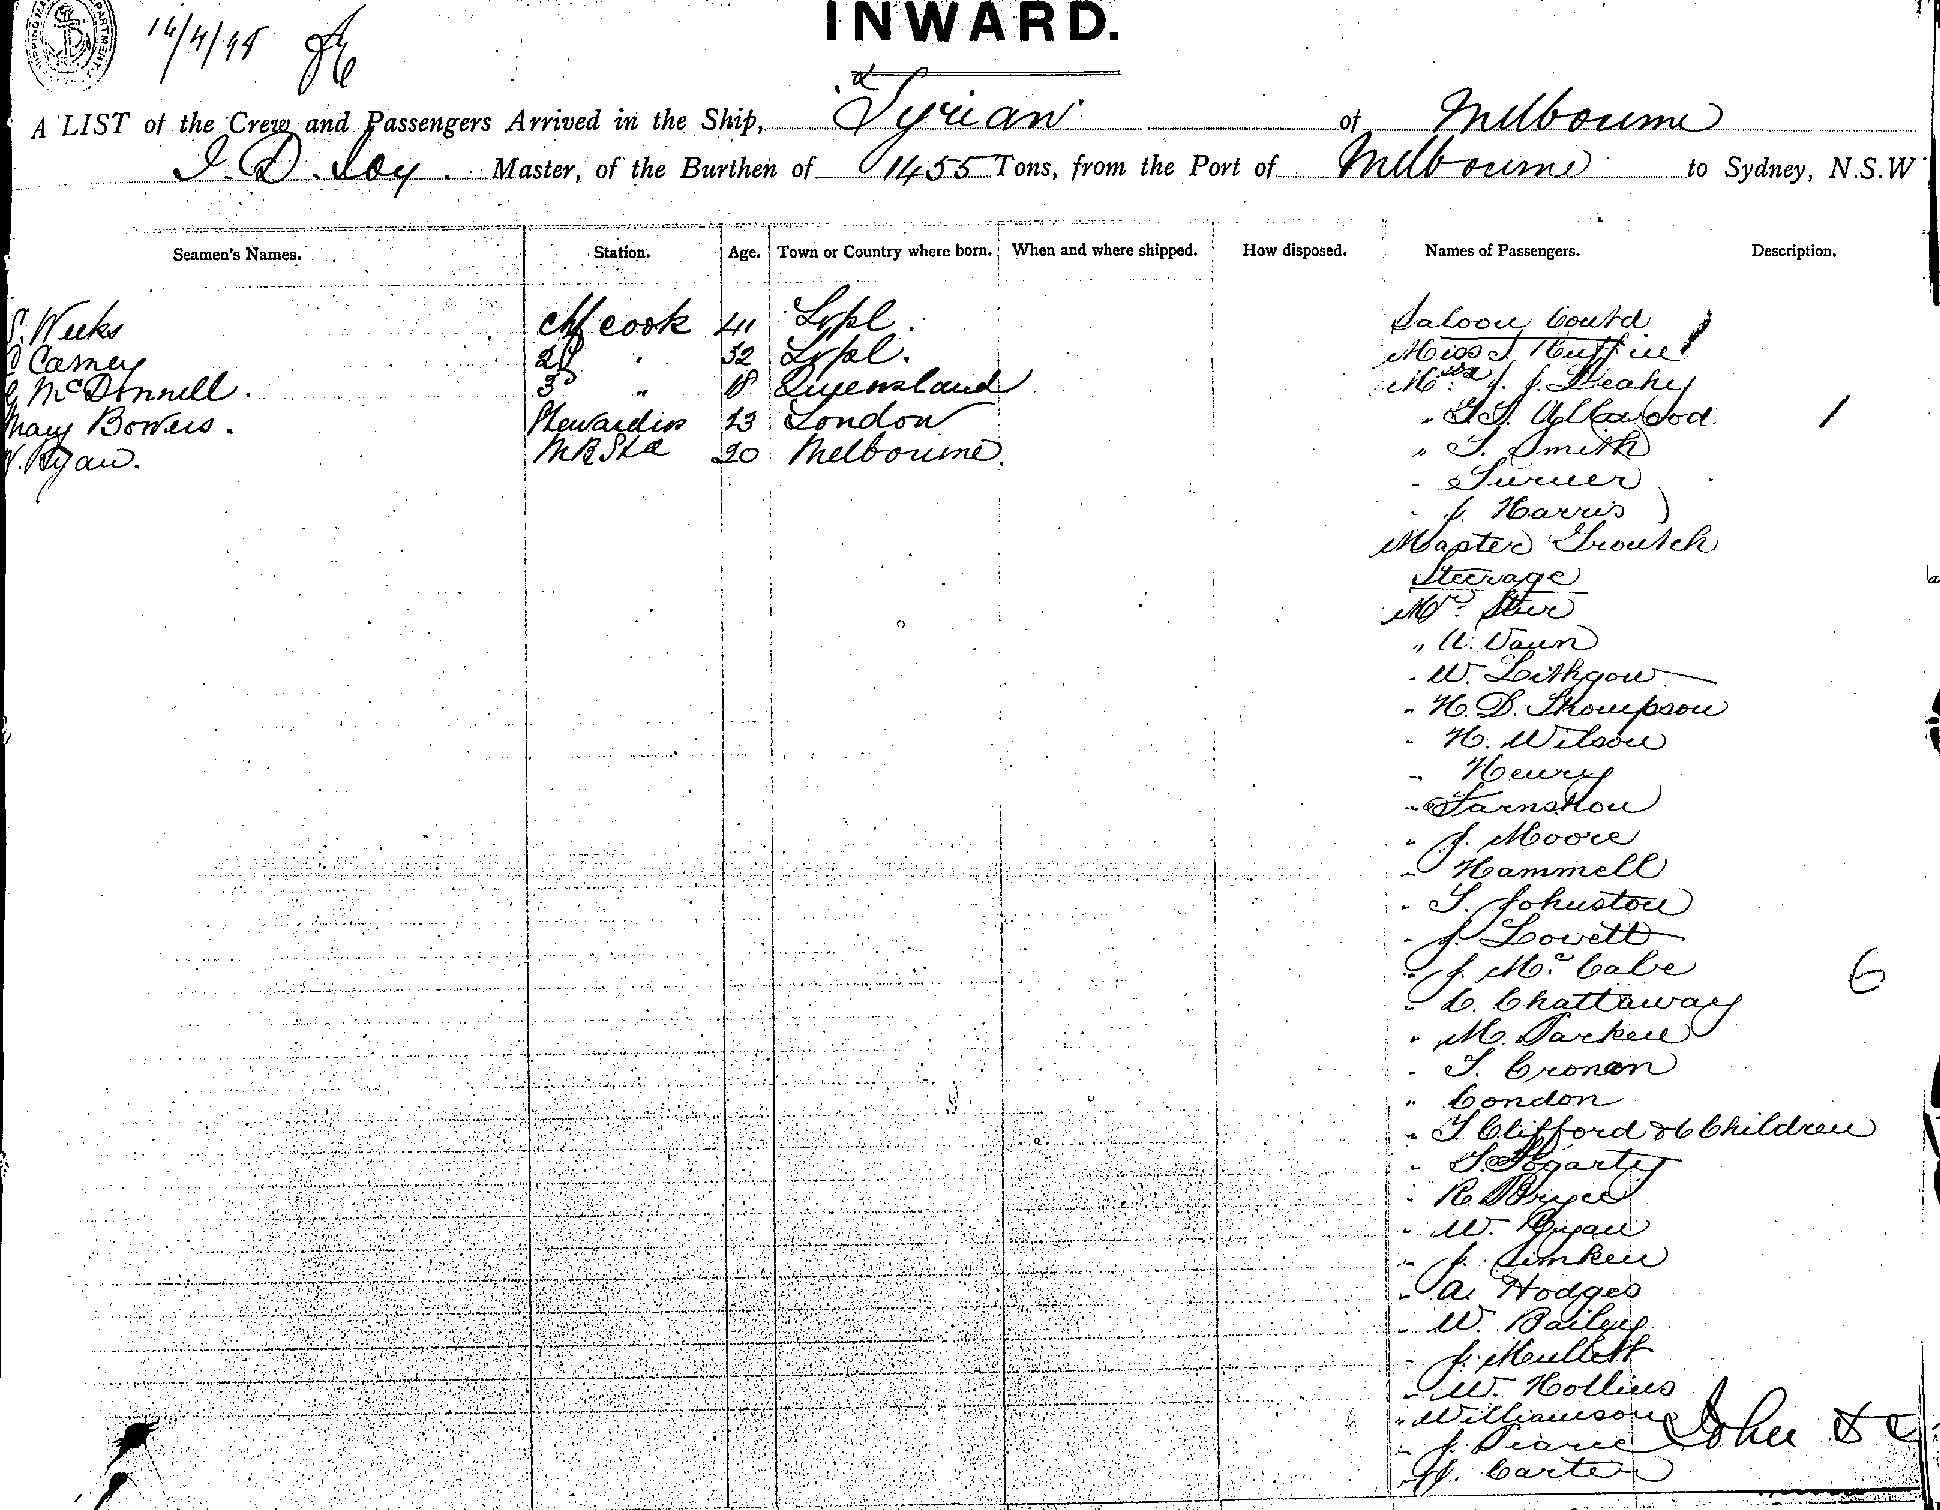 INWARD.
A LIST of the Crew and Passengers Arrived in the Ship, Tyrian of Melbourne
Master, of the Burthen of 1455 Tons, from the Port of Melbourne to Sydney, N.S.W
Seamen's Names. Station. Age. Town or Country where born. When and where shipped. How disposed. Names of Passengers. Description.
Weeks Chf cook 41 Lvpl. Saloon Contd
Carney 2d " 32 Lvpl. Miss
G McDonnell. 3d " 18 Queensland Mrs J. J. Leahy
Mary Bowers. Stewardess 43 London " Allwood 1
Ryan. 20 Melbourne. " T. Smith
" Turner
" J. Harris
Master Troutsch
Steerage
Mr.
"
" W. Lithgow
" H. D. Thompson
" H. Wilson
" Henry
"
" J. Moore
" Hammell
" T. Johnston
" J. Lovett
" J. McCabe 6
" C. Chattaway
" M. Parker
" T. Cronan
" Condon
" T Clifford & 6 Children
" Fogarty
" R Bryce
" W. Ryan
" J. Simken
" A. Hodges
" W. Bailey
" J. Mullett
" W. Hollins
" Williamson
" J. Pearce John
" J. Carter